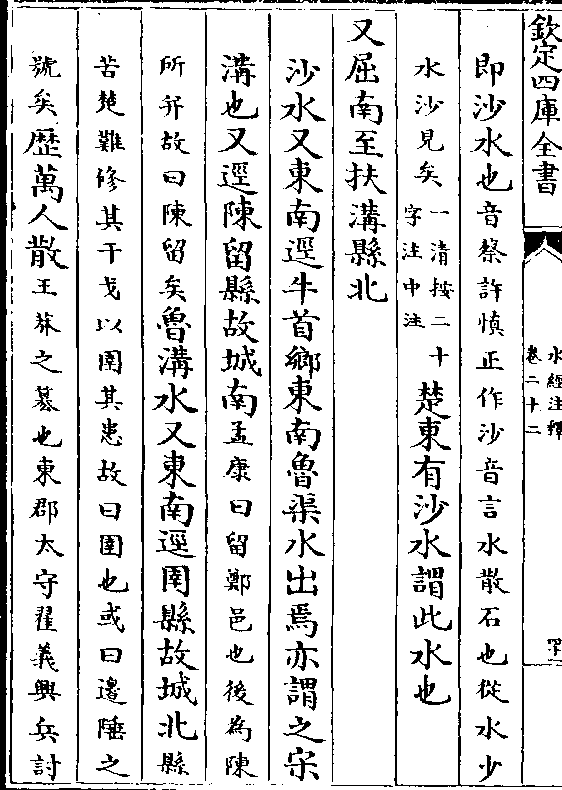 欽定四庫全書
水經注釋
卷二十二
罕一
即沙水也音蔡許慎正作沙音言水散石也從水少
水沙見矣一清按二十字注中注楚東有沙水謂此水也
又屈南至扶溝縣北
沙水又東南逕牛首鄉東南魯渠水出焉亦謂之宋
溝也又逕陳留縣故城南孟康曰留鄭邑也後為陳
所并故曰陳留矣魯溝水又東南逕圉縣故城北縣
苦楚難修其干戈以圉其患故曰圉也或曰邊陲之
號矣歷萬人散王莽之墓也東郡太守翟義興兵討